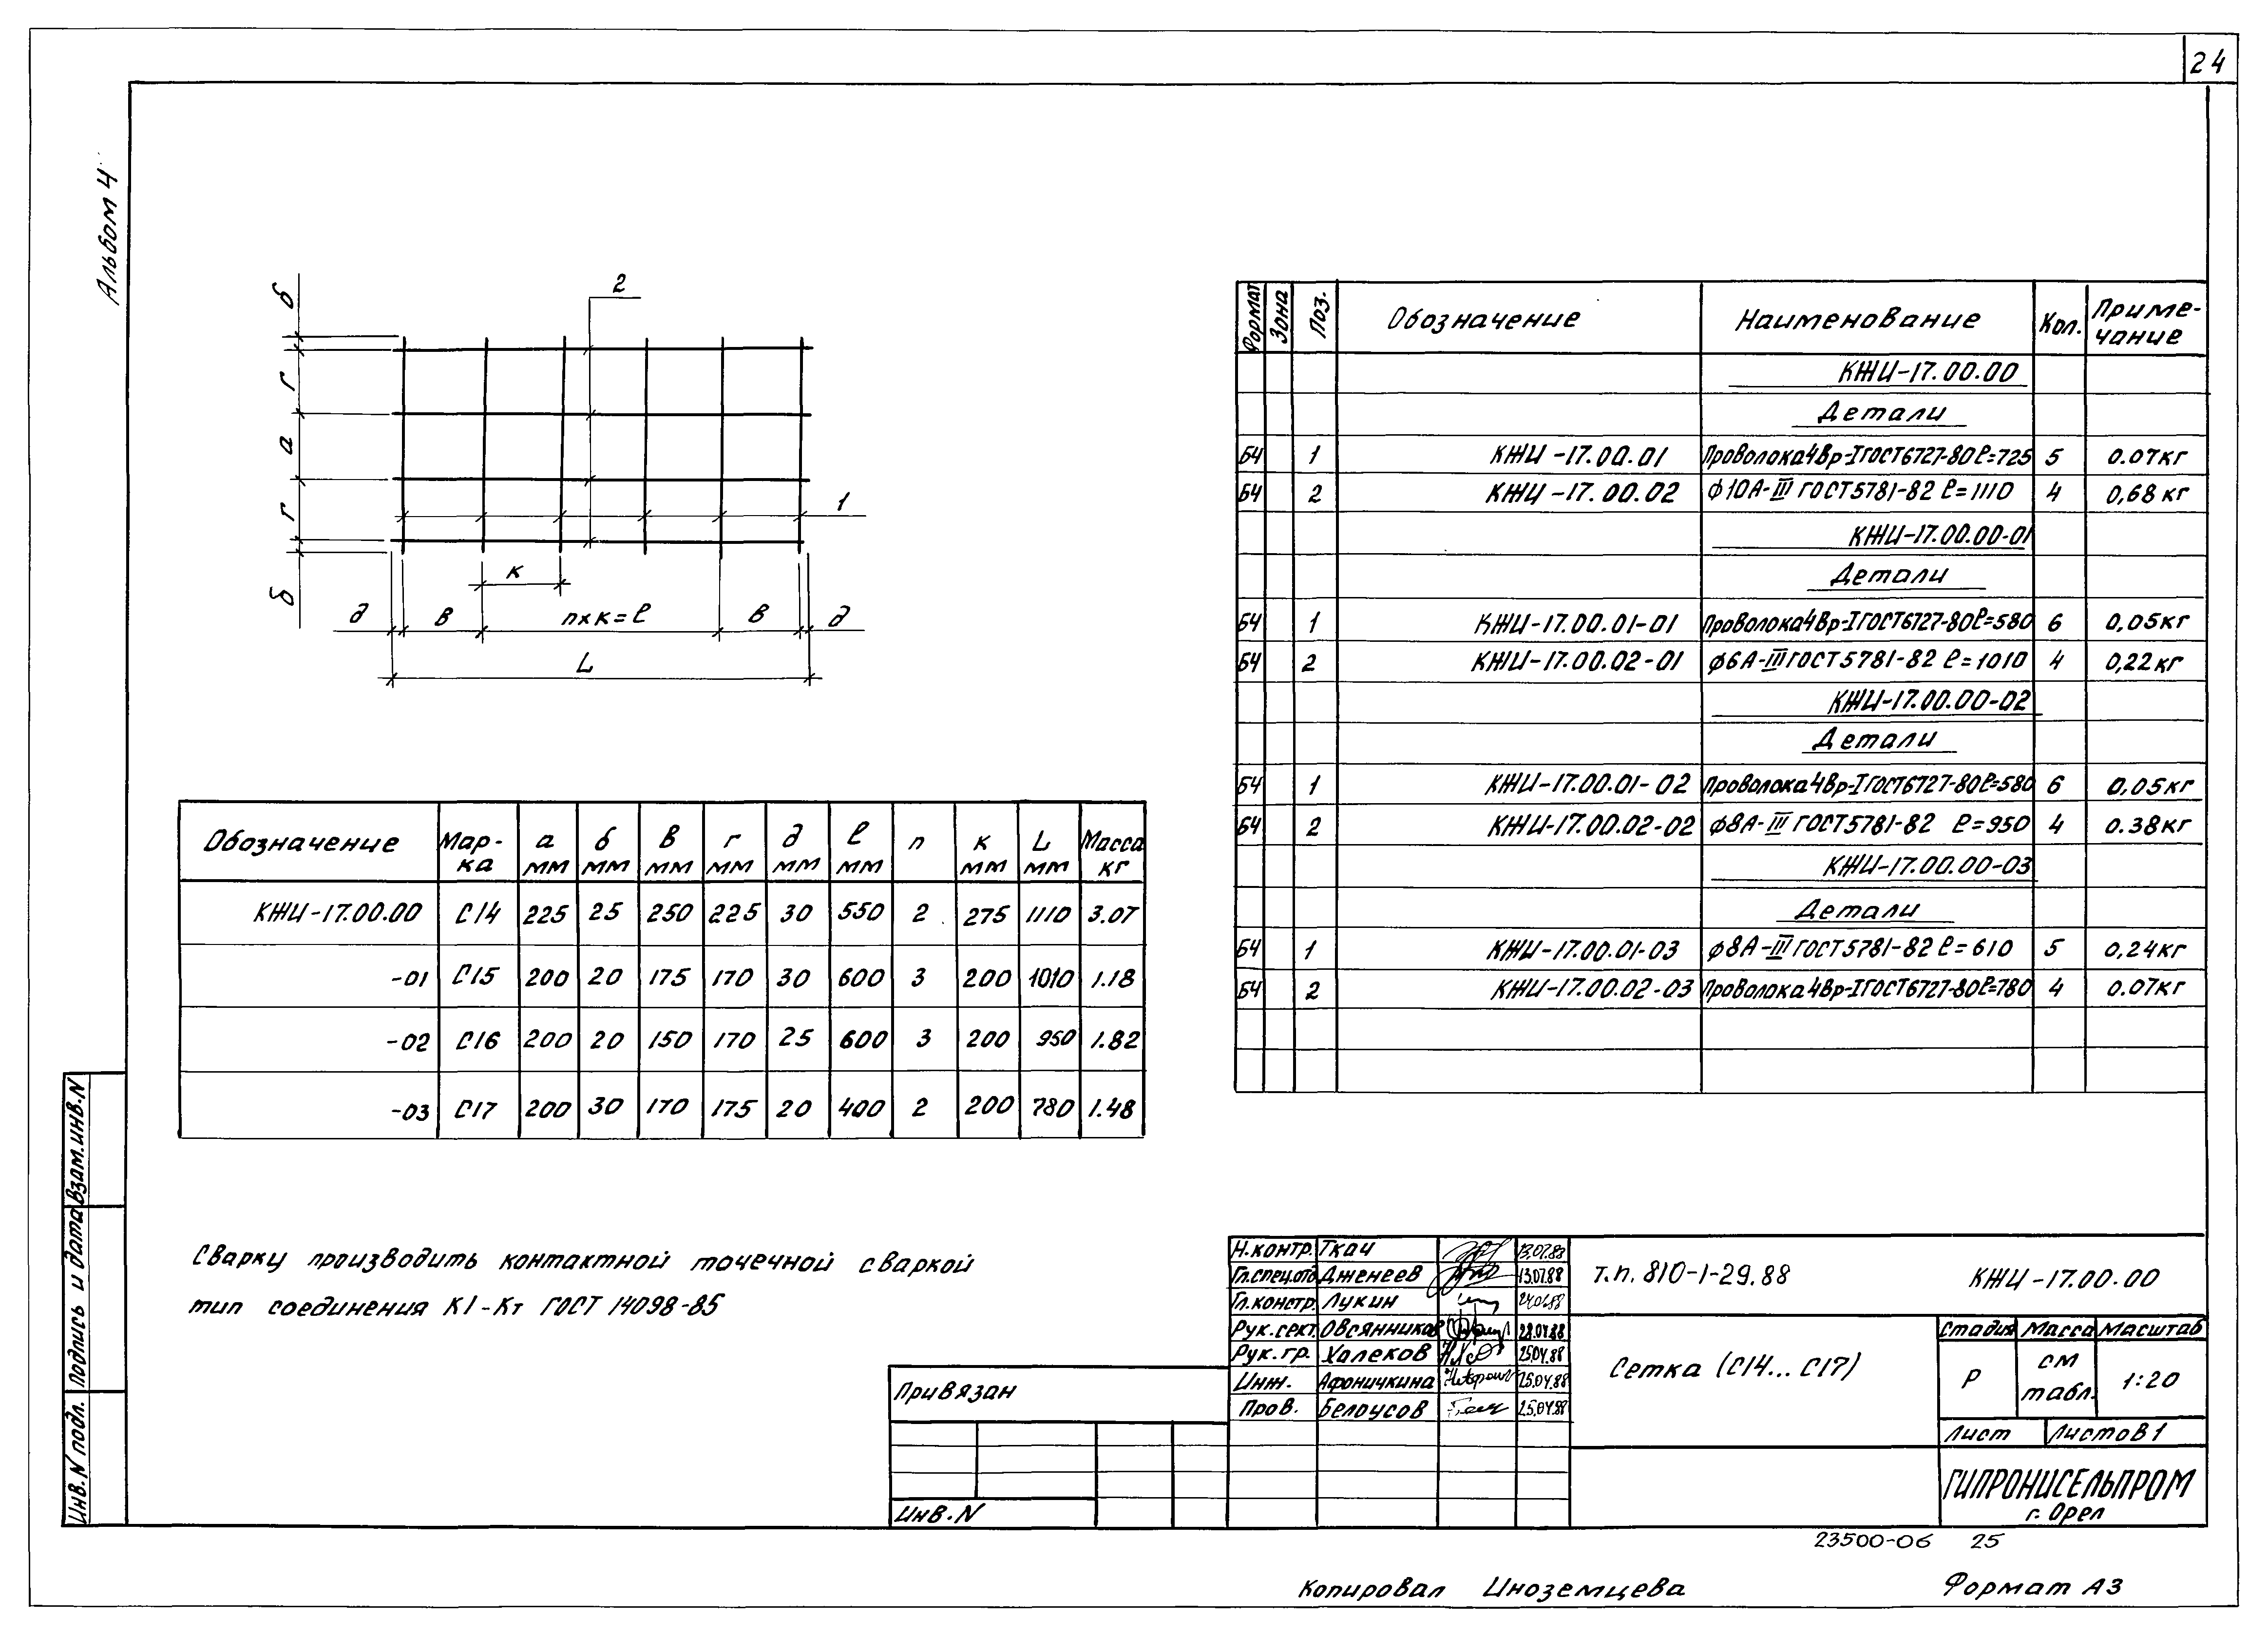 24
Альбом 4
б
г
а
г
б
2
1
к
д
в
n×к=ℓ
в
д
L
Обозначение Мар-ка а мм б мм в мм г мм д мм ℓ мм n к мм L мм Масса кг
КЖИ-17.00.00 С14 225 25 250 225 30 550 2 275 1110 3.07
-01 С15 200 20 175 170 30 600 3 200 1010 1.18
-02 С16 200 20 150 170 25 600 3 200 950 1.82
-03 С17 200 30 170 175 20 400 2 200 780 1.48
Сварку производить контактной точечной сваркой
тип соединения К1-Кт ГОСТ 14098-85
Формат Зона Поз. Обозначение Наименование Кол. Приме-чание
КЖИ-17.00.00
Детали
БЧ 1 КЖИ-17.00.01 Проволока4Вр-IГОСТ6727-80ℓ=725 5 0.07кг
БЧ 2 КЖИ-17.00.02 ф10А-III ГОСТ5781-82 ℓ=1110 4 0,68кг
КЖИ-17.00.00-01
Детали
БЧ 1 КЖИ-17.00.01-01 Проволока4Вр-IГОСТ6727-80ℓ=580 6 0,05кг
БЧ 2 КЖИ-17.00.02-01 ф6А-IIIГОСТ5781-82 ℓ=1010 4 0,22кг
КЖИ-17.00.00-02
Детали
БЧ 1 КЖИ-17.00.01-02 Проволока4Вр-IГОСТ6727-80ℓ=580 6 0,05кг
БЧ 2 КЖИ-17.00.02-02 ф8А-III ГОСТ5781-82 ℓ=950 4 0.38кг
КЖИ-17.00.00-03
Детали
БЧ 1 КЖИ-17.00.01-03 ф8А-IIIГОСТ5781-82 ℓ=610 5 0,24кг
БЧ 2 КЖИ-17.00.02-03 Проволока4Вр-IГОСТ6727-80ℓ=780 4 0.07кг
Взам.инв.N
Подпись и дата
Инв.N подл.
Привязан
Инв.N
Н.контр. Ткач 13.07.88
Гл.спец.отд Дженеев 13.07.88
Гл.констр. Лукин
Рук.сект. Овсянников
Рук.гр. Халеков 25.04.88
Инж. Афоничкина 25.04.88
Пров. Белоусов 25.04.88
т.п. 810-1-29.88 КЖИ-17.00.00
Сетка (С14...С17)
Стадия Масса Масштаб
Р см табл. 1:20
Лист Листов 1
ГИПРОНИСЕЛЬПРОМ
г. Орел
23500-06 25
Копировал Иноземцева Формат А3